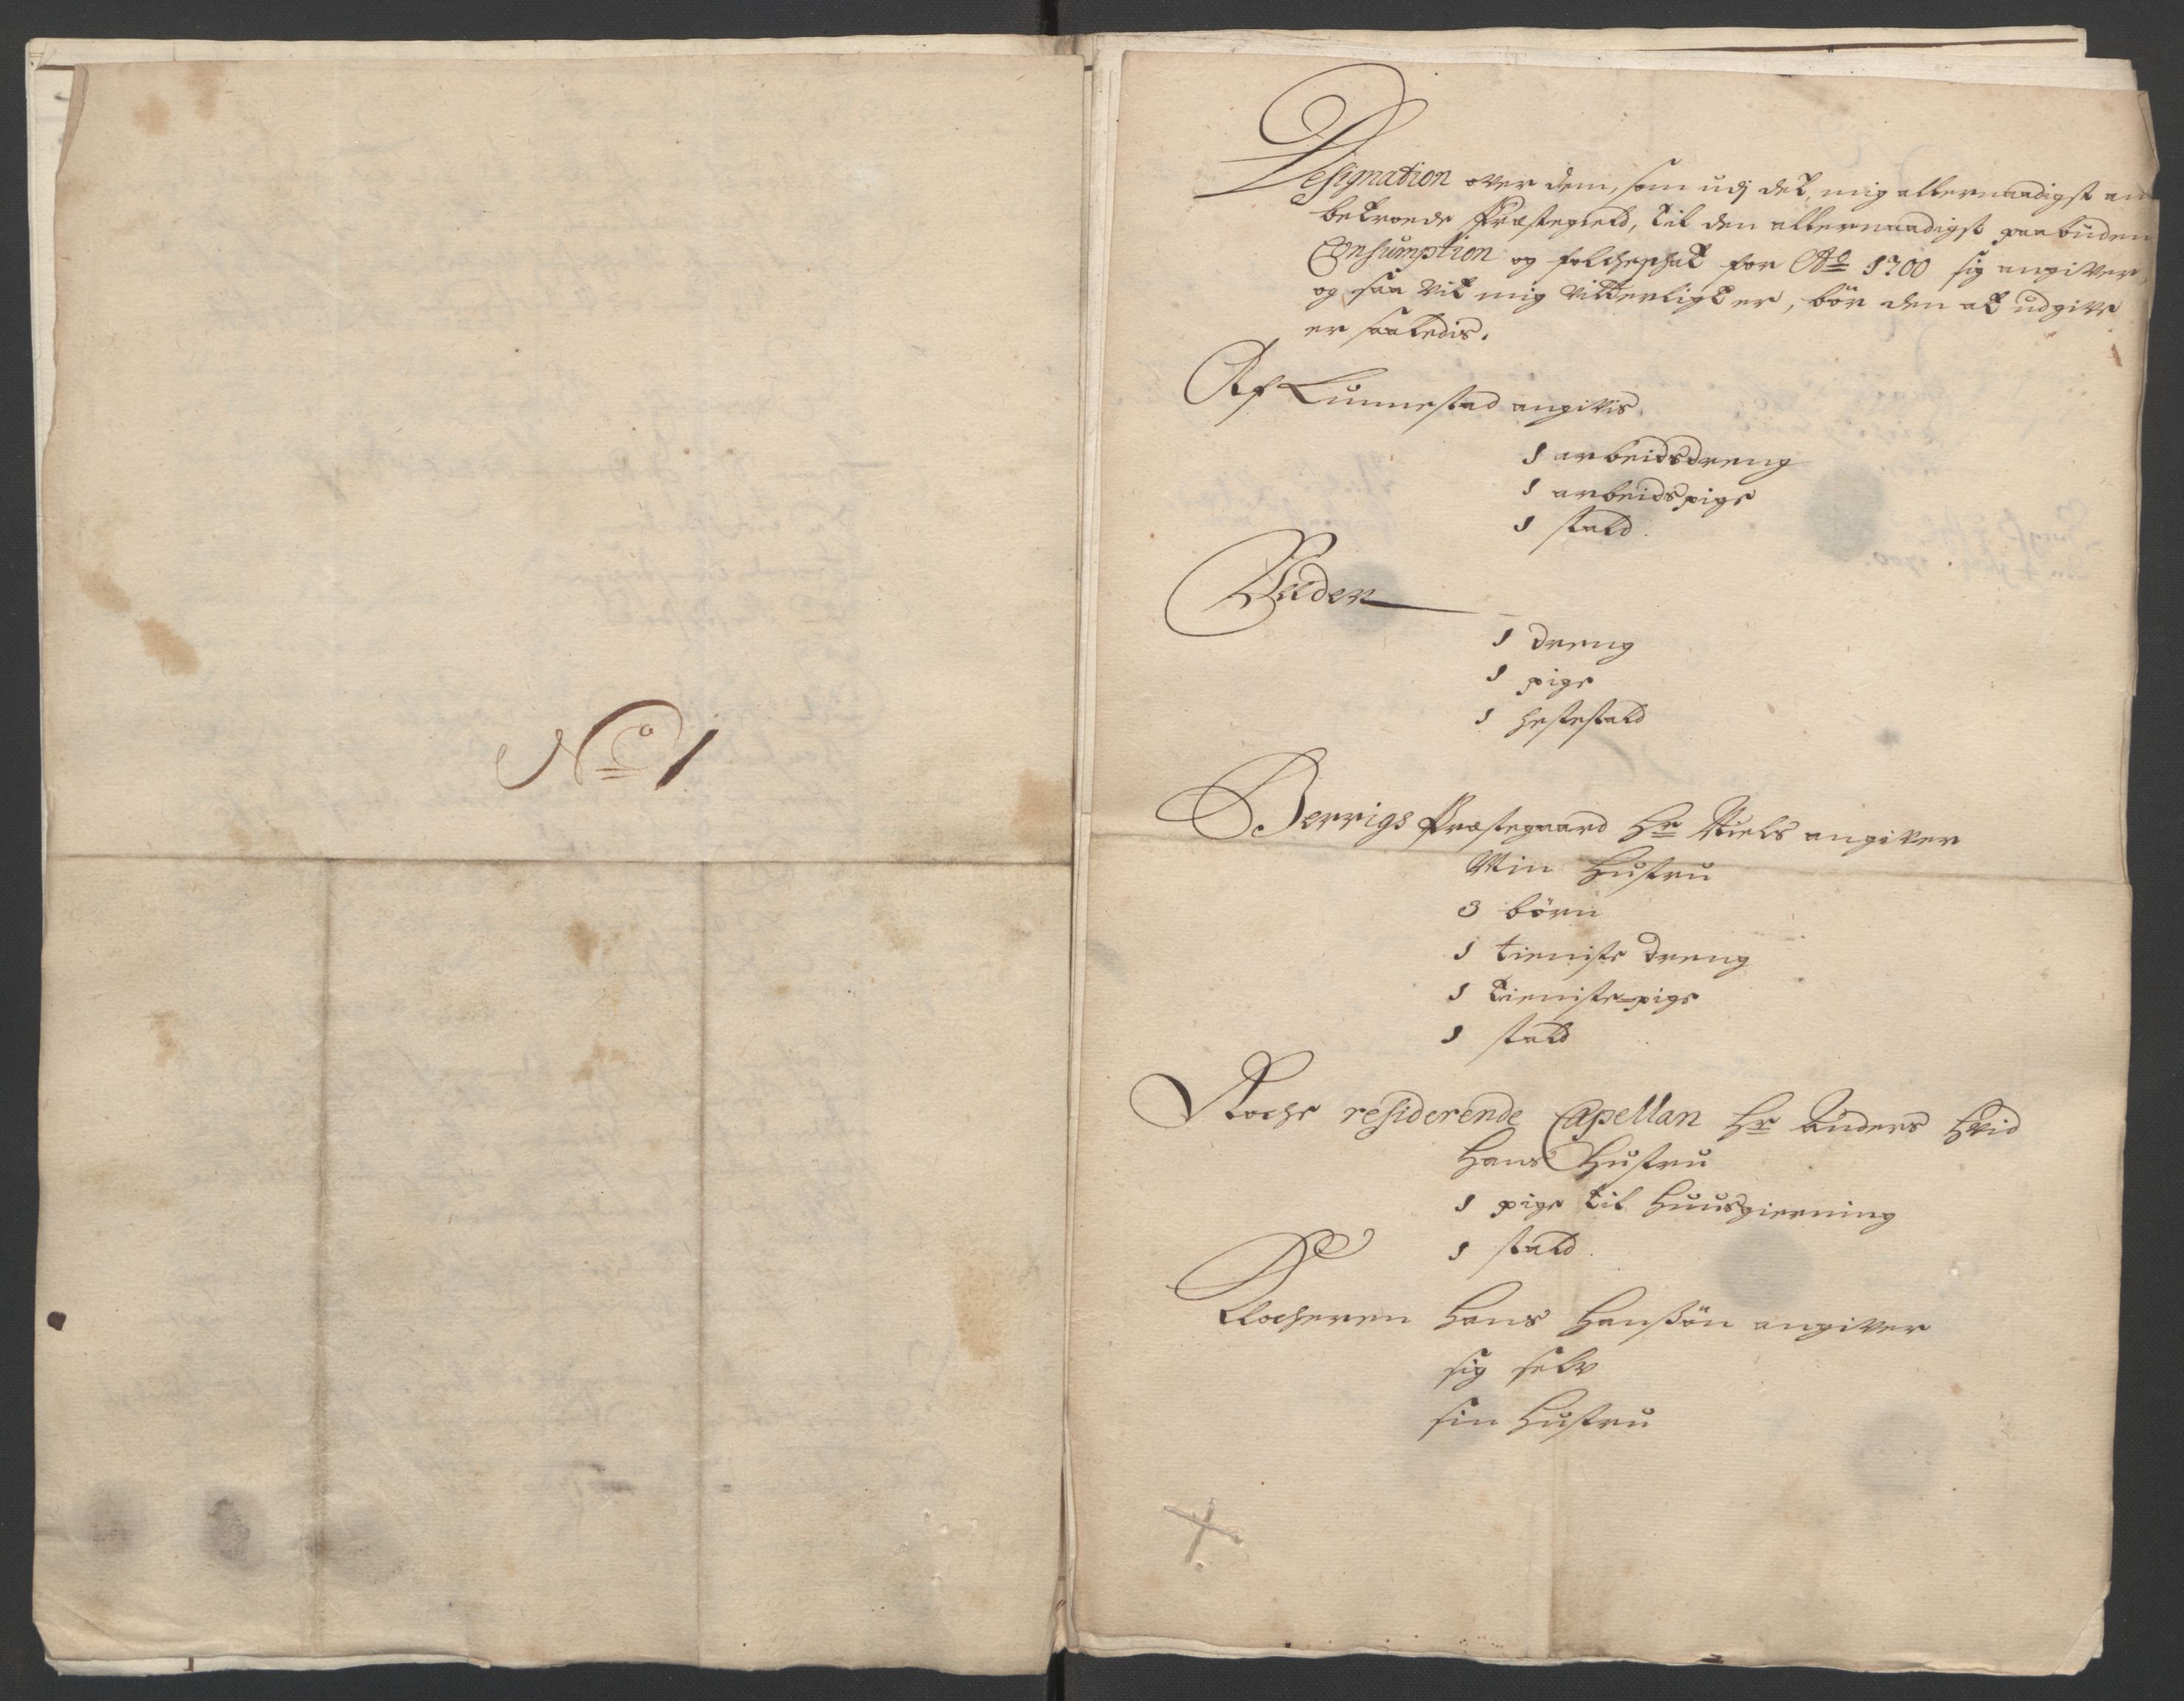 No 1
Designation over dem, som udj det mig allernaadigst an
betroede Præstegield, til den allernaadigst paabuden
Consumption og folcheschat for Ao 1700 sig angiver,
og saa vit mig vitterligt er, bör den at udgive
er saaledis.
Af Lunnestad angivis
1 arbeidsdreng
1 arbeidspige
1 stald.
1 dreng
1 pige
1 hestestald
Berrigs Præstegaard Hr Niels angiver
Min Hustru
3 börn
1 tieniste dreng
1 tieniste-pige
1 stald
residerende Capellan Hr Anders Hvid
Hans Hustru
1 pige til huusgierning
1 stald.
Klocheren Hans Hanßön angiver
sig selv
sin Hustru